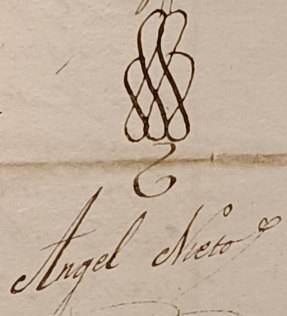 Angel Nieto